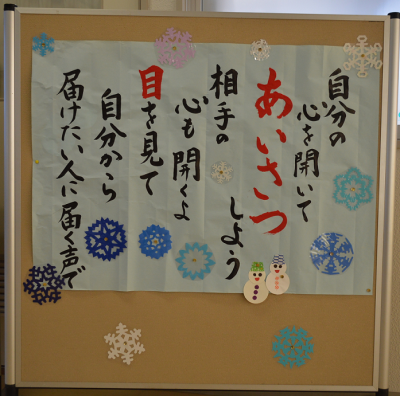 自分の
心を開いて
あいさつ
しよう
相手の
心も開くよ
目を見て
自分から
届けたい人に届く声で